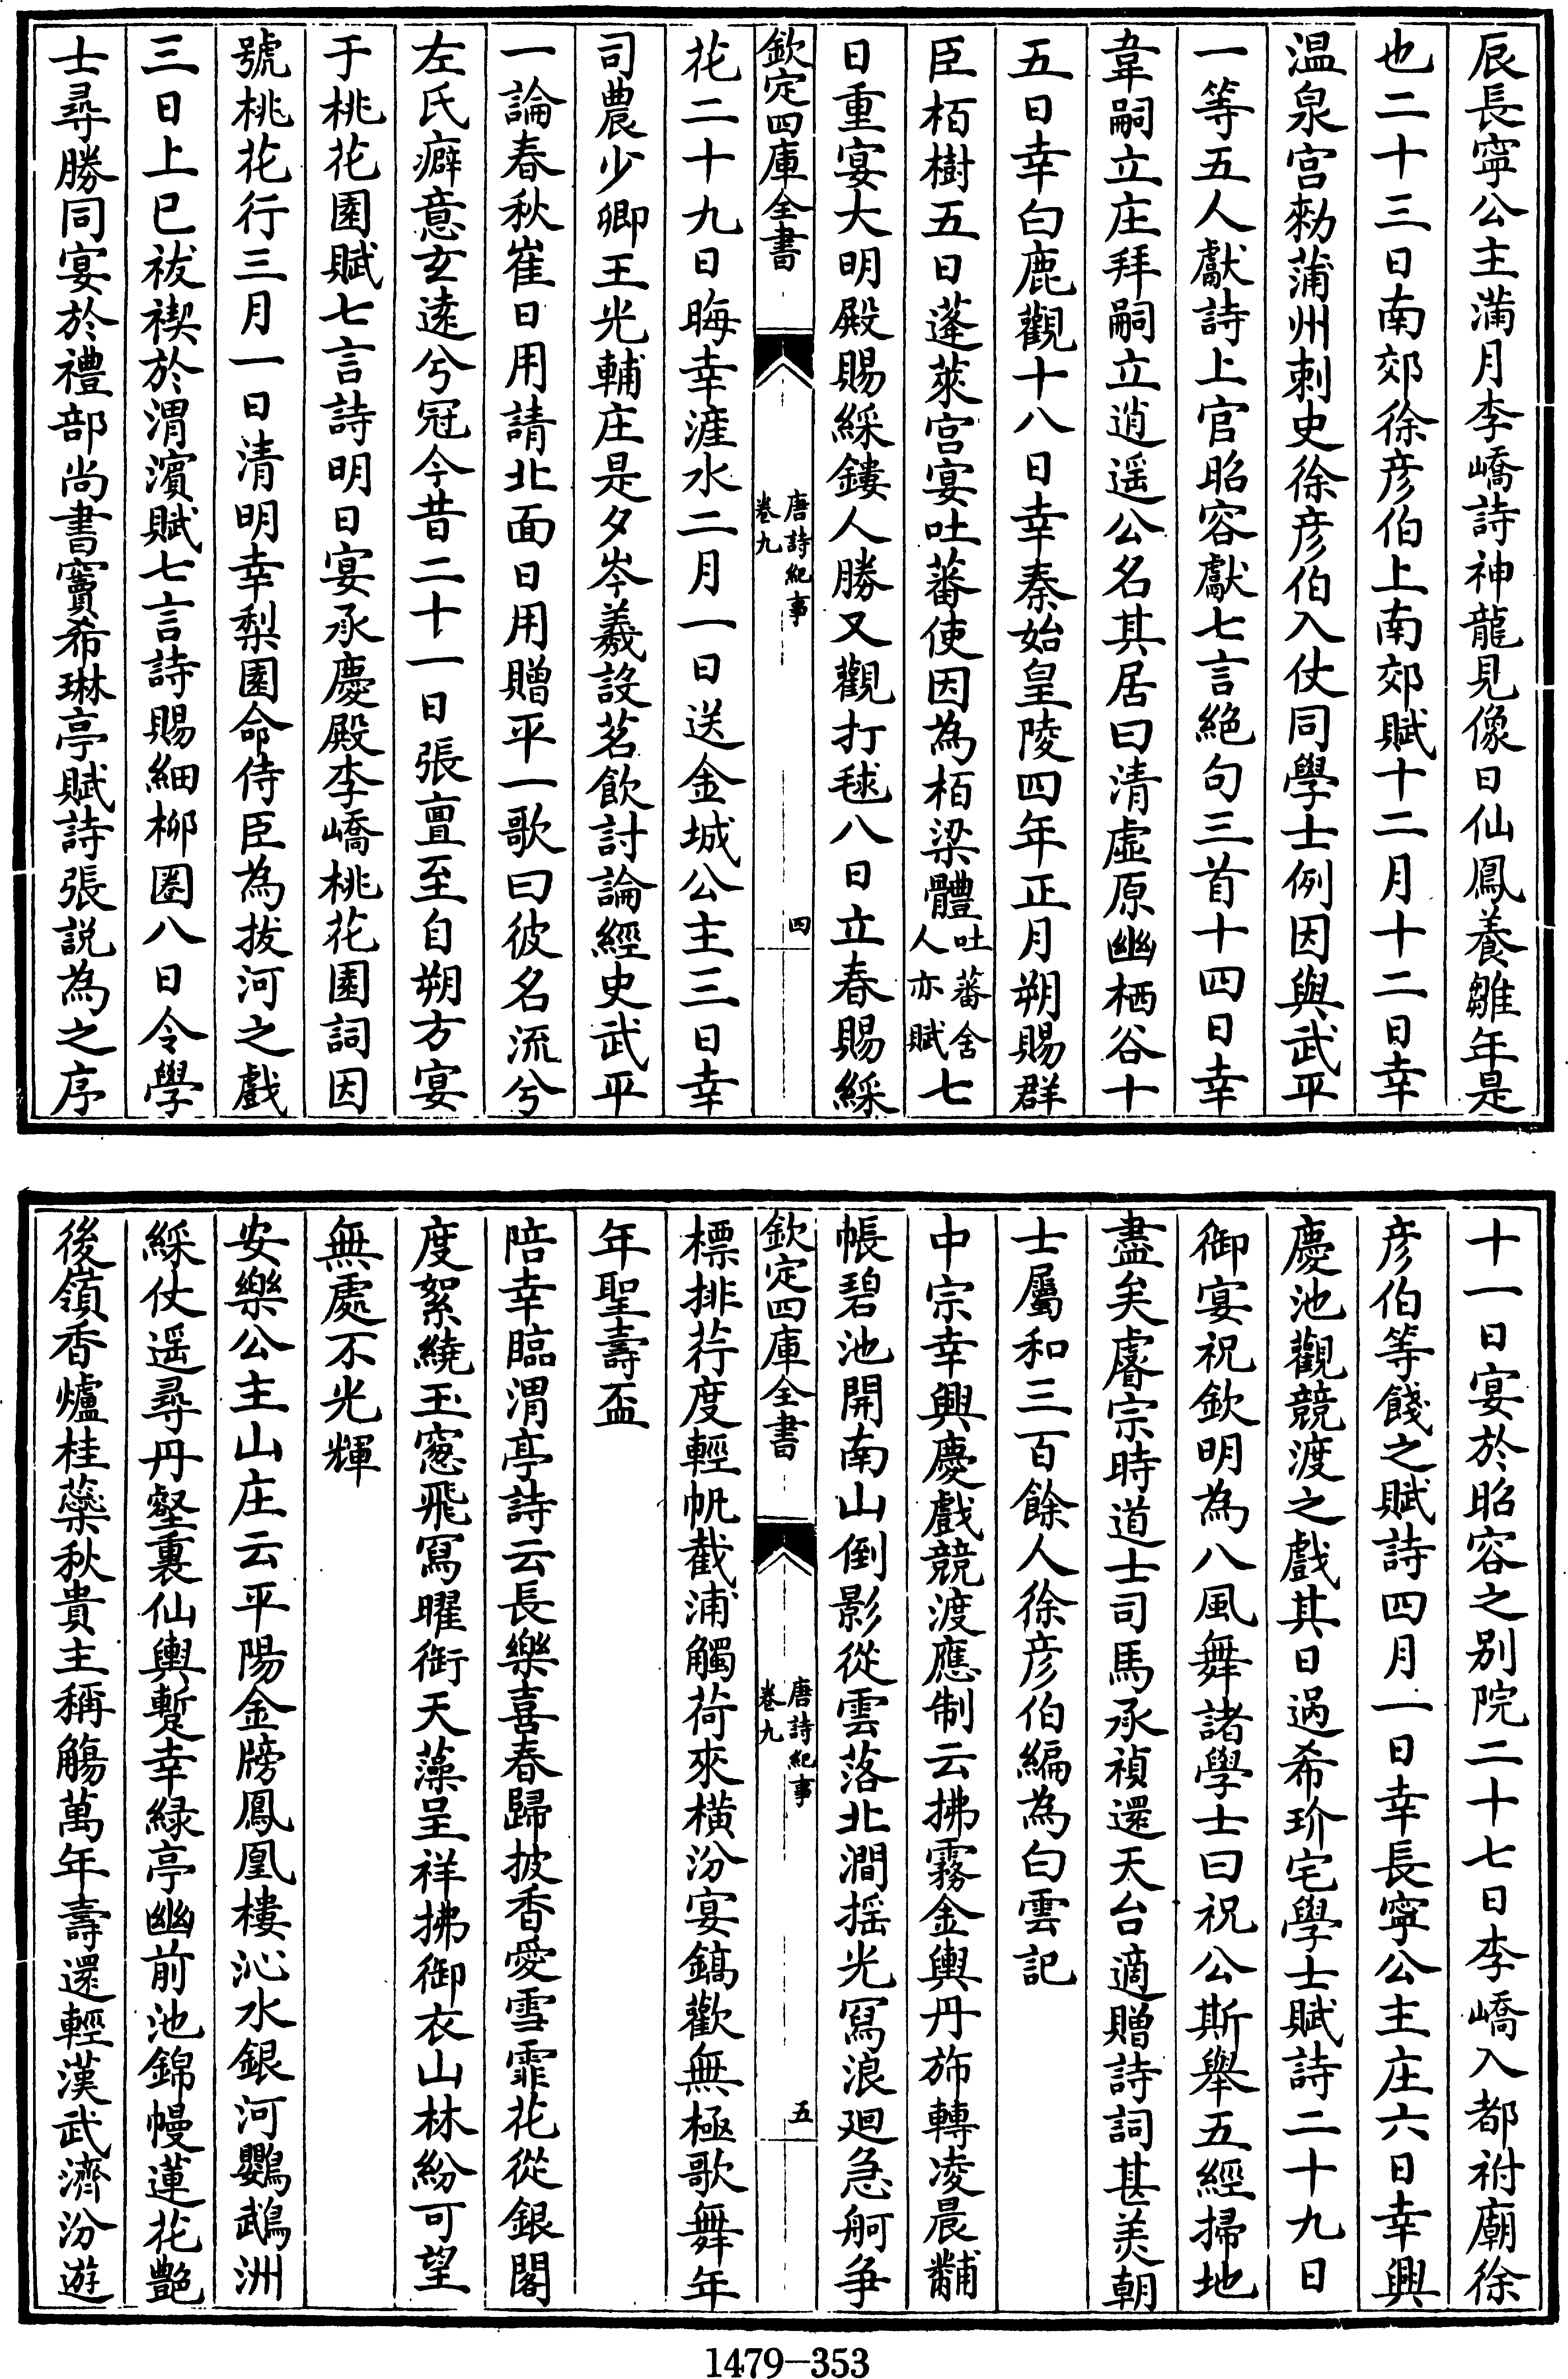 辰長寧公主滿月李嶠詩神龍見像日仙鳳養雛年是
也二十三日南郊徐彥伯上南郊賦十二月十二日幸
温泉宫勑蒲州刺史徐彥伯入仗同學士例因與武平
一等五人獻詩上官昭容獻七言絶句三首十四日幸
韋嗣立庄拜嗣立逍遥公名其居曰清虛原幽栖谷十
五日幸白鹿觀十八日幸秦始皇陵四年正月朔賜群
臣栢樹五日蓬萊宫宴吐蕃使因為栢梁體吐蕃舍人亦賦七
日重宴大明殿賜綵鏤人勝又觀打毬八日立春賜綵
欽定四庫全書 唐詩紀事 卷九 四
花二十九日晦幸滻水二月一日送金城公主三日幸
司農少卿王光輔庄是夕岑羲設茗飲討論經史武平
一論春秋崔日用請北面日用贈平一歌曰彼名流兮
左氏癖意玄遠兮冠今昔二十一日張亶至自朔方宴
于桃花園賦七言詩明日宴承慶殿李嶠桃花園詞因
號桃花行三月一日清明幸梨園命侍臣為拔河之戲
三日上巳祓禊於渭濱賦七言詩賜細栁圈八日令學
士尋勝同宴於禮部尚書竇希琳亭賦詩張説為之序
十一日宴於昭容之别院二十七日李嶠入都祔廟徐
彥伯等餞之賦詩四月一日幸長寧公主庄六日幸興
慶池觀競渡之戲其日過希玠宅學士賦詩二十九日
御宴祝欽明為八風舞諸學士曰祝公斯舉五經掃地
盡矣睿宗時道士司馬承禎還天台適贈詩詞甚美朝
士屬和三百餘人徐彥伯編為白雲記
中宗幸興慶戲競渡應制云拂霧金輿丹斾轉凌晨黼
帳碧池開南山倒影從雲落北澗揺光寫浪廻急舸争
標排荇度輕帆截浦觸荷來横汾宴鎬歡無極歌舞年
欽定四庫全書 唐詩紀事 卷九 五
年聖壽盃
陪幸臨渭亭詩云長樂喜春歸披香愛雪霏花從銀閣
度絮繞玉窓飛寫曜銜天藻呈祥拂御衣山林紛可望
無處不光輝
安樂公主山庄云平陽金牓鳳凰樓沁水銀河鸚鵡洲
綵仗遥尋丹壑裏仙輿蹔幸緑亭幽前池錦幔蓮花艶
後嶺香爐桂蘂秋貴主稱觴萬年壽還輕漢武濟汾遊
1479-353